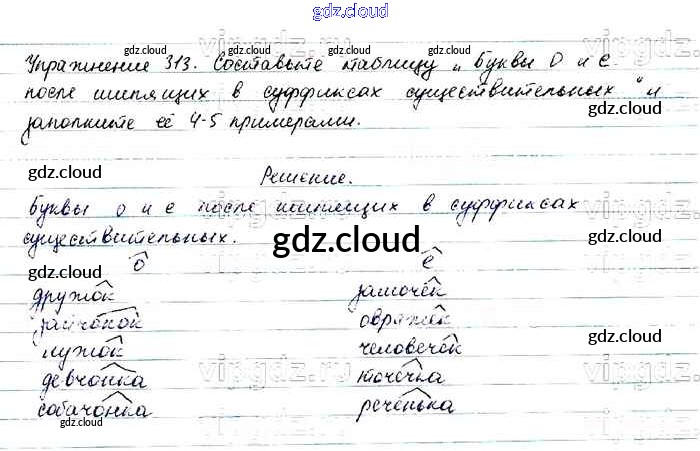 gdz.cloud
Упражнение 313. Составьте таблицу „Буквы О и е
после шипящих в суффиксах существительных" и
заполните её 4-5 примерами.
Решение.
Буквы о и е после шипящих в суффиксах
существительных.
о е
дружок замочек
зайчонок овражек
лужок человечек
девчонка точечка
собачонка реченька
gdz.cloud
gdz.cloud
gdz.cloud
gdz.cloud
gdz.cloud
gdz.cloud
gdz.cloud
gdz.cloud
gdz.cloud
gdz.cloud
gdz.cloud